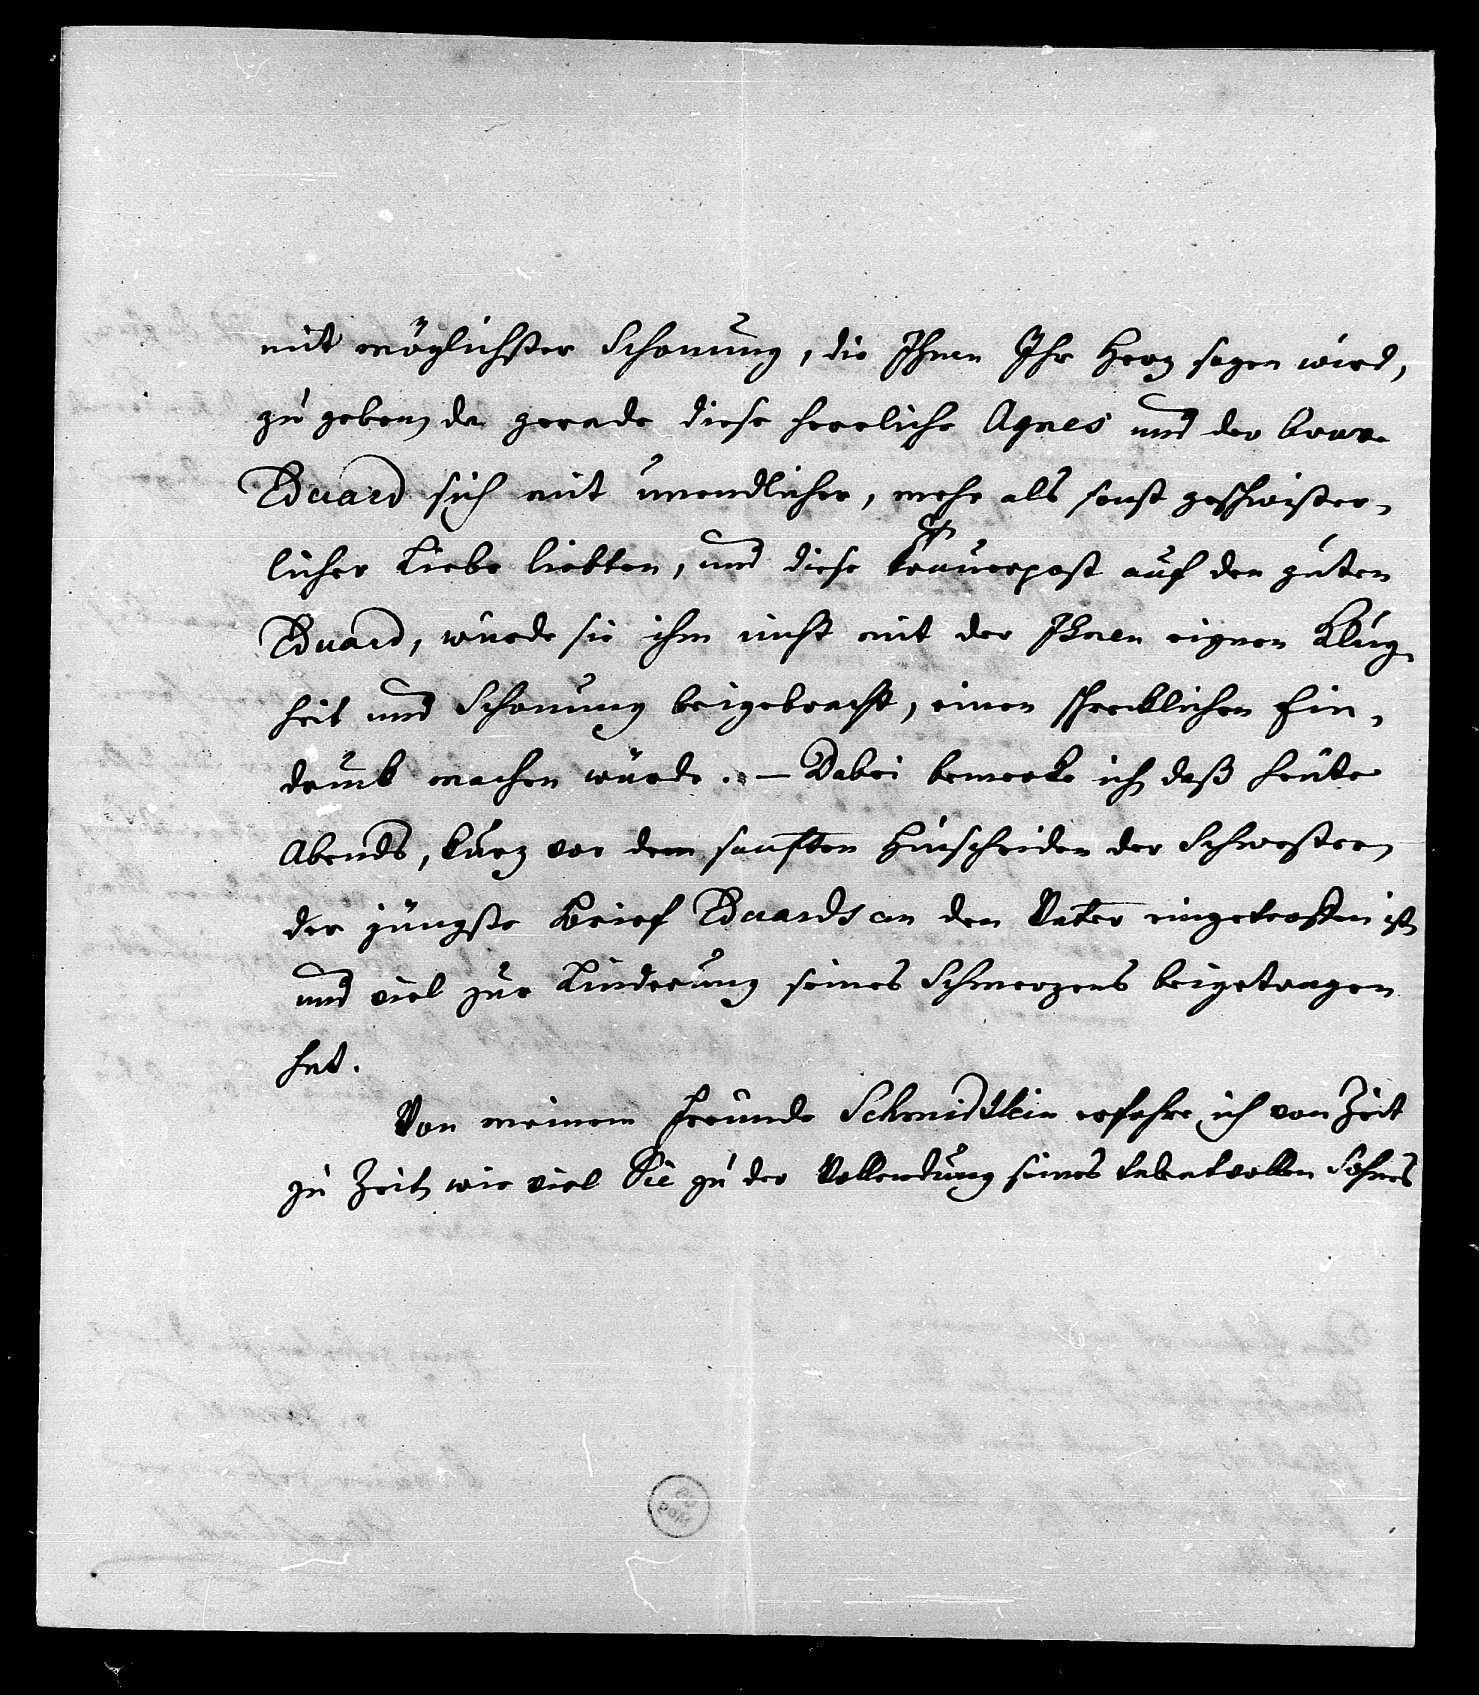 mit möglichster Schonung, die Ihnen Ihr Herz sagen wird,
zu geben, da gerade diese herrliche Agnes und der brave
Eduard sich mit unendlicher, mehr als sonst geschwister-
licher Liebe liebten, und diese Trauerpost auf den guten
Eduard, würde sie ihm nicht mit der Ihnen eignen Klug-
heit und Schonung beigebracht, einen schrecklichen Ein-
druck machen würde. – Dabei bemerke ich, daß heute
Abends, kurz vor dem sanften Hinscheiden der Schwester,
der jüngste Brief Eduards an den Vater eingetroffen ist,
und viel zur Linderung seines Schmerzens beigetragen
hat.
Von meinem Freunde Schmidtlein erfahre ich von Zeit
zu Zeit, wie viel Sie zu der Vollendung seines talentvollen Sohnes